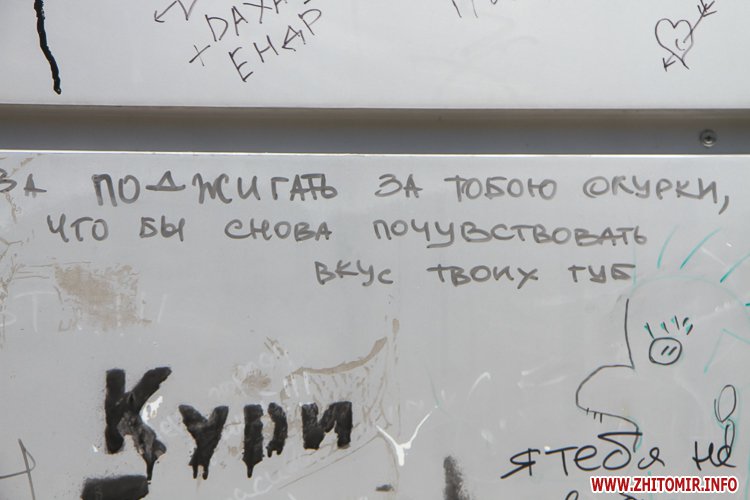 + DАХА
ЕНДР
ЗА ПОДЖИГАТЬ ЗА ТОБОЮ ОКУРКИ,
ЧТО БЫ СНОВА ПОЧУВСТВОВАТЬ
ВКУС ТВОИХ ГУБ
Кури
я тебя не
WWW.ZHITOMIR.INFO